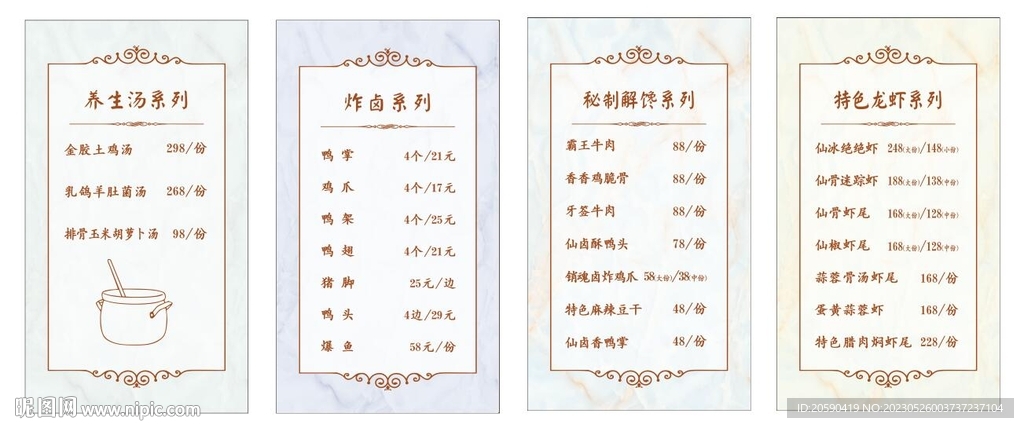 养生汤系列
金胶土鸡汤 298/份
乳鸽羊肚菌汤 268/份
排骨玉米胡萝卜汤 98/份
炸卤系列
鸭掌 4个/21元
鸡爪 4个/17元
鸭架 4个/25元
鸭翅 4个/21元
猪脚 25元/边
鸭头 4边/29元
爆鱼 58元/份
秘制解馋系列
霸王牛肉 88/份
香香鸡脆骨 88/份
牙签牛肉 88/份
仙卤酥鸭头 78/份
销魂卤炸鸡爪 58(大份)/38(中份)
特色麻辣豆干 48/份
仙卤香鸭掌 48/份
特色龙虾系列
仙冰绝绝虾 248(大份)/148(小份)
仙骨迷踪虾 188(大份)/138(中份)
仙骨虾尾 168(大份)/128(中份)
仙椒虾尾 168(大份)/128(中份)
蒜蓉骨汤虾尾 168/份
蛋黄蒜蓉虾 168/份
特色腊肉焖虾尾 228/份
昵图网 www.nipic.com
ID:20590419 NO:20230526003737237104